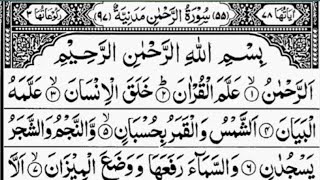 اٰيَاتُهَا ٧٨ (٥٥) سُوْرَةُ الرَّحْمٰنِ مَدَنِيَّةٌ (٩٧) رُكُوْعَاتُهَا ٣
بِسْمِ اللّٰهِ الرَّحْمٰنِ الرَّحِيْمِ
اَلرَّحْمٰنُ ۙ‏﴿۱﴾ عَلَّمَ الْقُرْاٰنَ ؕ‏﴿۲﴾ خَلَقَ الْاِنْسَانَ ۙ‏﴿۳﴾ عَلَّمَهُ
الْبَيَانَ ‏﴿۴﴾ اَلشَّمْسُ وَالْقَمَرُ بِحُسْبَانٍ ۙ‏﴿۵﴾ وَّالنَّجْمُ وَالشَّجَرُ
يَسْجُدٰنِ ‏﴿۶﴾ وَالسَّمَآءَ رَفَعَهَا وَوَضَعَ الْمِيْزَانَ ۙ‏﴿۷﴾ اَلَّا